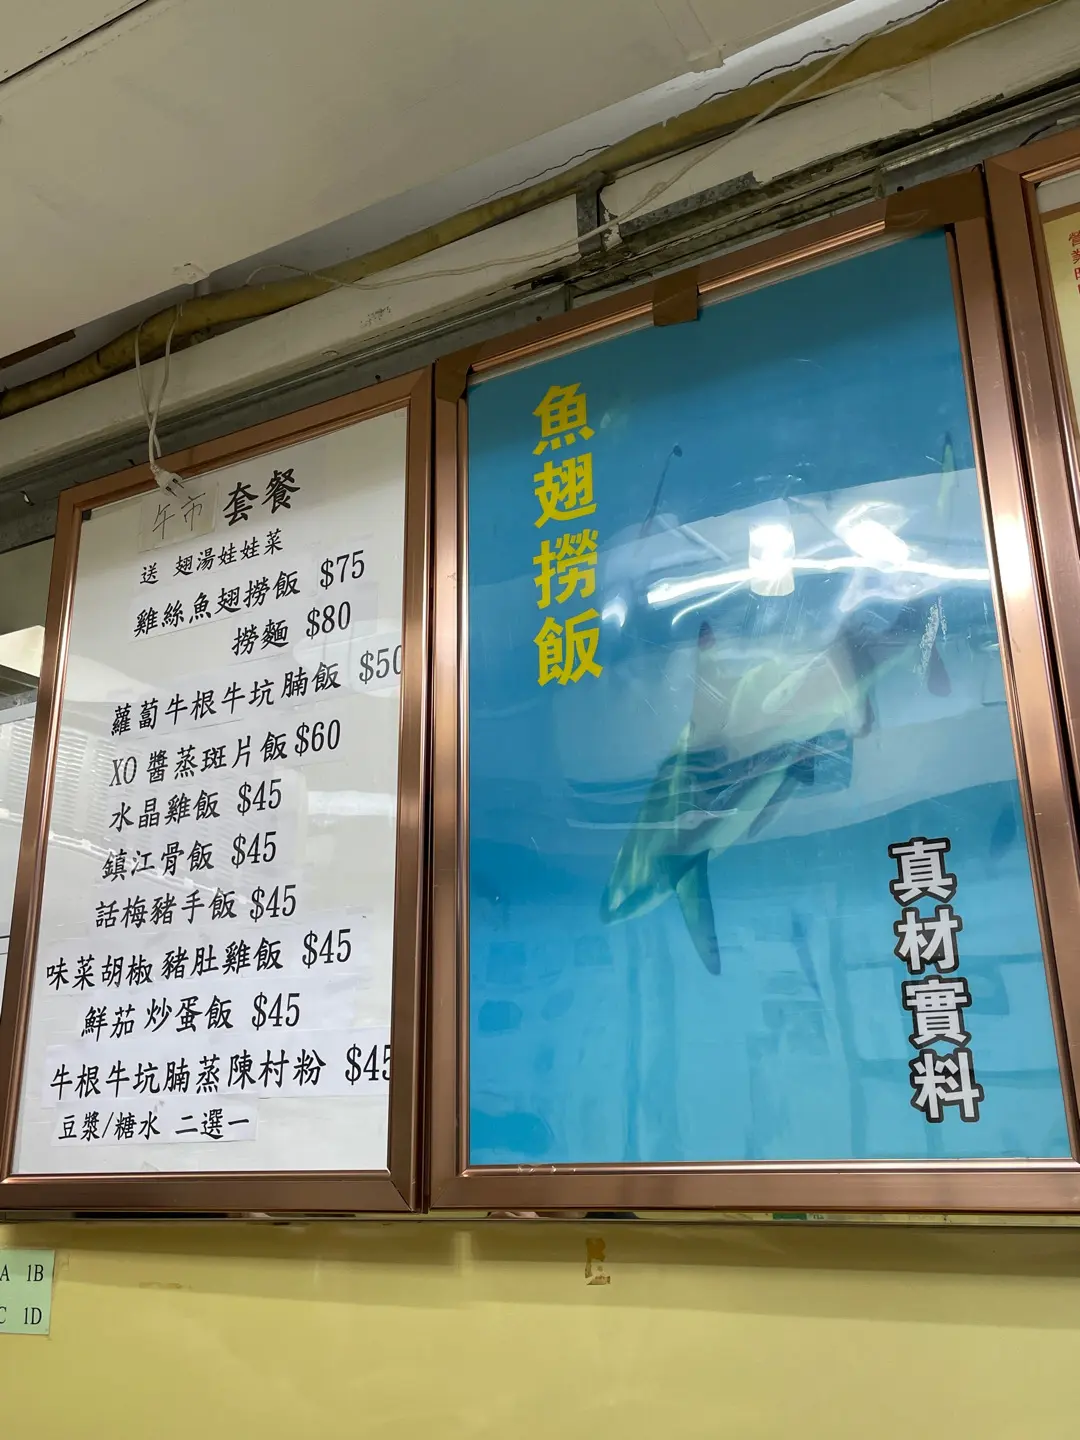 午市 套餐
送 翅湯娃娃菜
雞絲魚翅撈飯 $75
撈麵 $80
蘿蔔牛根牛坑腩飯 $50
XO醬蒸斑片飯 $60
水晶雞飯 $45
鎮江骨飯 $45
話梅豬手飯 $45
味菜胡椒豬肚雞飯 $45
鮮茄炒蛋飯 $45
牛根牛坑腩蒸陳村粉 $45
豆漿/糖水 二選一
魚翅撈飯
真材實料
A 1B
C 1D